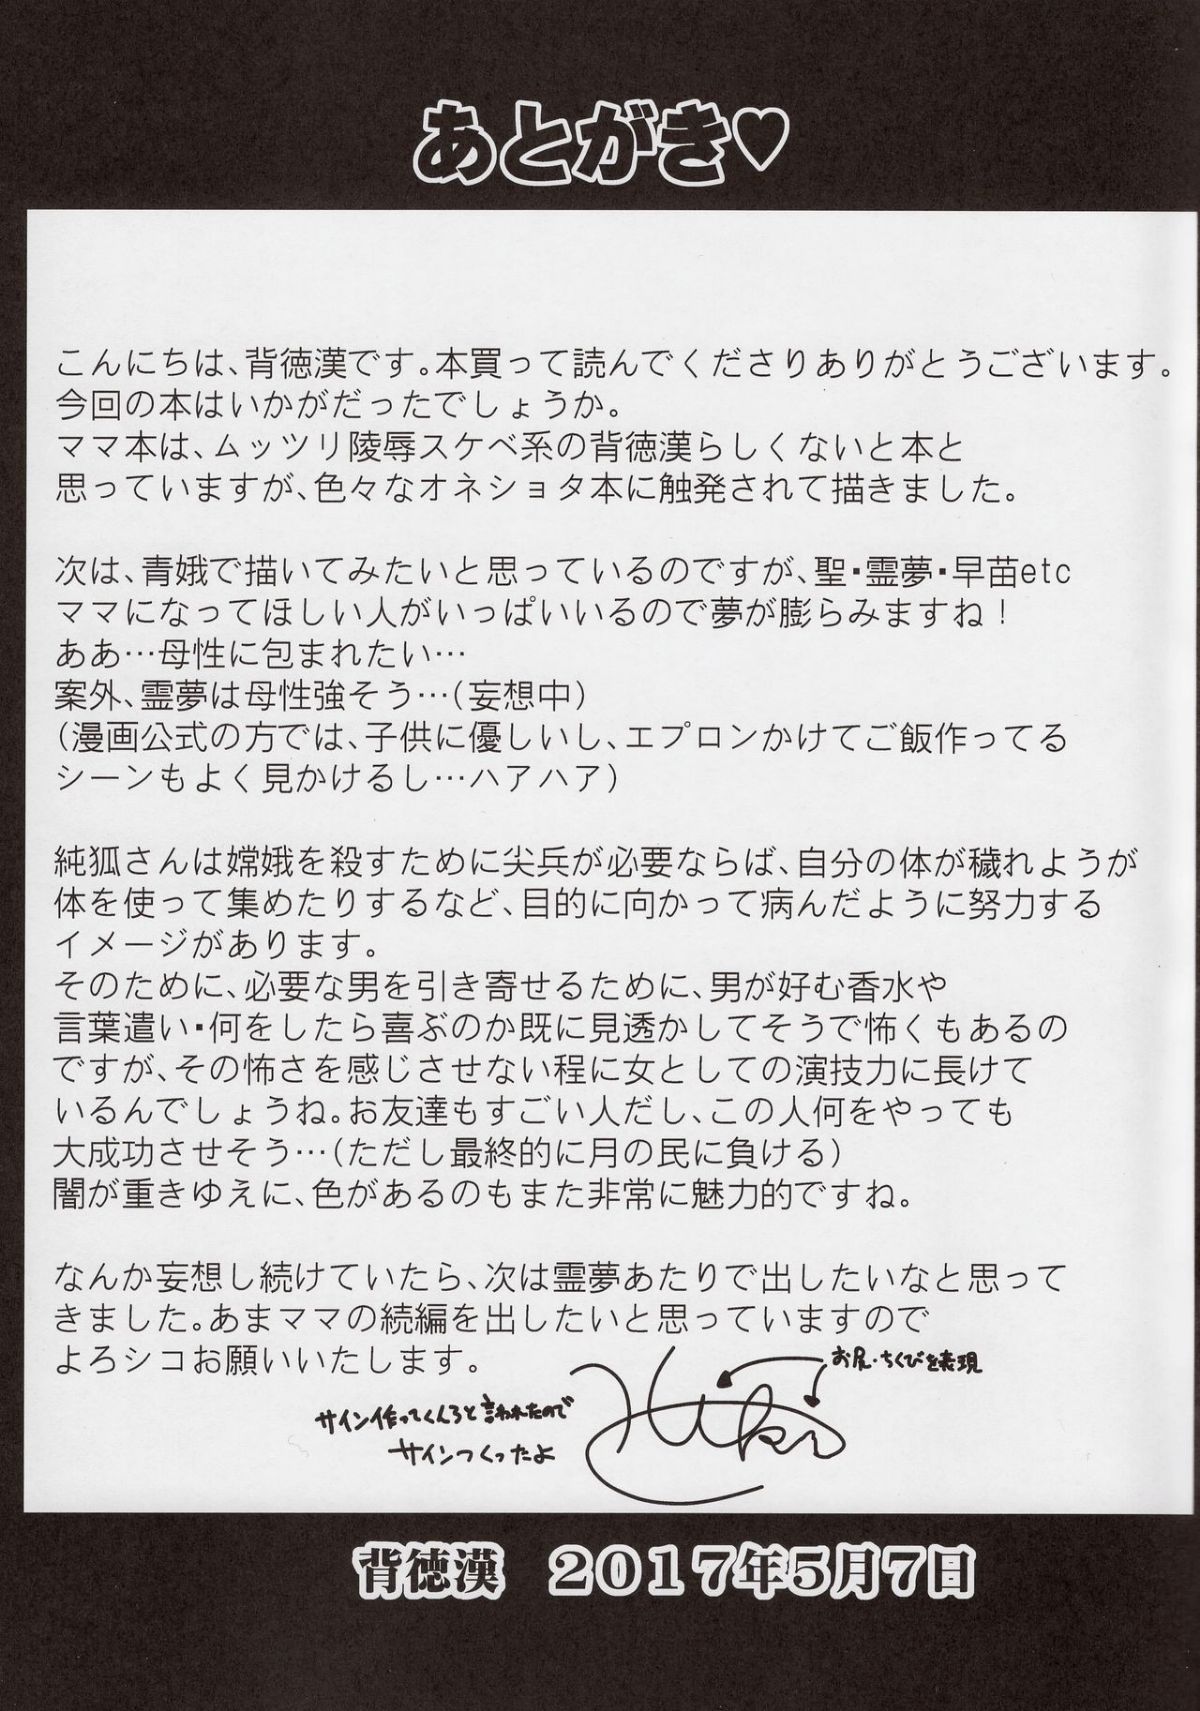 あとがき♡
こんにちは、背徳漢です。本買って読んでくださりありがとうございます。
今回の本はいかがだったでしょうか。
ママ本は、ムッツリ陵辱スケベ系の背徳漢らしくないと本と
思っていますが、色々なオネショタ本に触発されて描きました。
次は、青娥で描いてみたいと思っているのですが、聖・霊夢・早苗etc
ママになってほしい人がいっぱいいるので夢が膨らみますね！
ああ…母性に包まれたい…
案外、霊夢は母性強そう…（妄想中）
（漫画公式の方では、子供に優しいし、エプロンかけてご飯作ってる
シーンもよく見かけるし…ハアハア）
純狐さんは嫦娥を殺すために尖兵が必要ならば、自分の体が穢れようが
体を使って集めたりするなど、目的に向かって病んだように努力する
イメージがあります。
そのために、必要な男を引き寄せるために、男が好む香水や
言葉遣い・何をしたら喜ぶのか既に見透かしてそうで怖くもあるの
ですが、その怖さを感じさせない程に女としての演技力に長けて
いるんでしょうね。お友達もすごい人だし、この人何をやっても
大成功させそう…（ただし最終的に月の民に負ける）
闇が重きゆえに、色があるのもまた非常に魅力的ですね。
なんか妄想し続けていたら、次は霊夢あたりで出したいなと思って
きました。あまママの続編を出したいと思っていますので
よろシコお願いいたします。
お尻・ちくびを表現
サイン作ってくんろと言われたので
サインつくったよ
背徳漢　2017年5月7日